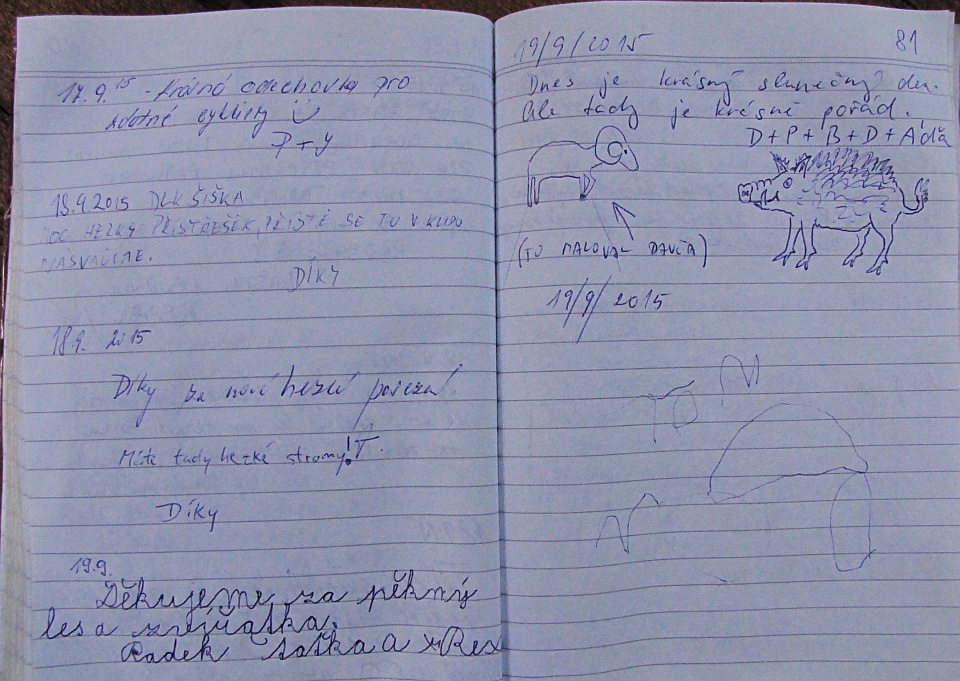 17.9.15 - Krásná odechovka pro
zdatné cyklisty
P+Y
19.9.2015 DLK ŠIŠKA
MOC HEZKÝ PŘÍSTŘEŠEK, PŘÍŠTĚ SE TU V KLIDU
NASVAČÍME.
DÍKY
18.9. 2015
Díky za nové hezké
Máte tady hezké stromy! T.
Díky
19.9.
Děkujeme za pěkný
les a zvířátka.
Radek a Rex
19/9/2015
81
Dnes je krásný slunečný den.
Ale tady je krásně pořád.
D+P+B+D+Áďa
(TO MALOVAL DAVČA)
19/9/2015
TO
M